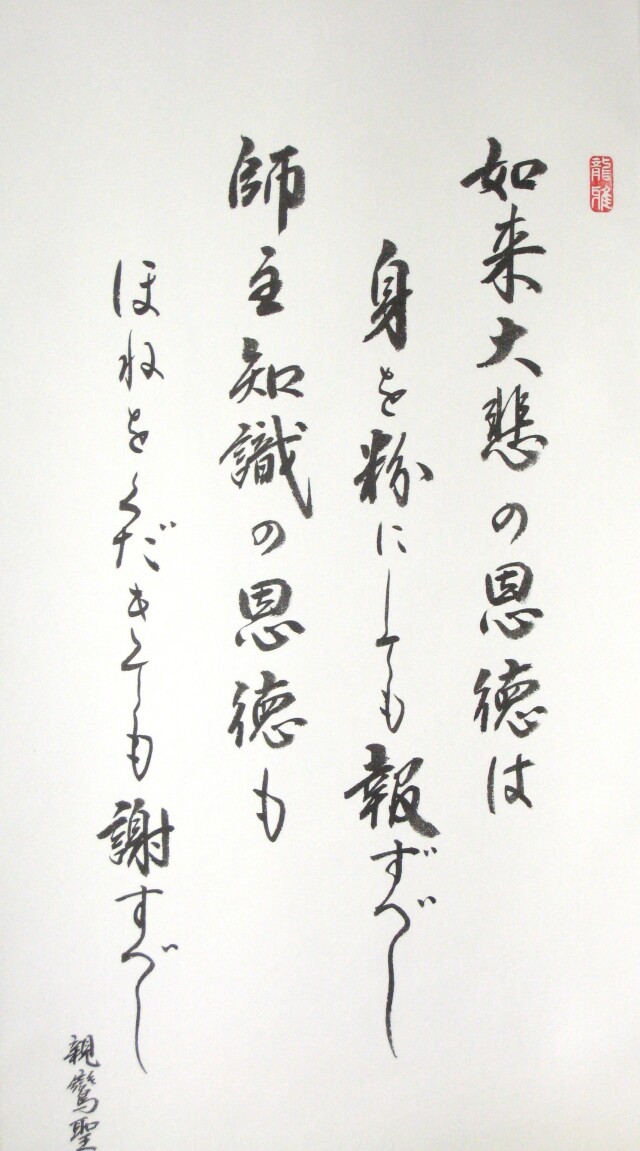 如来大悲の恩徳は
身を粉にしても報ずべし
師主知識の恩徳も
ほねをくだきても謝すべし
親鸞聖